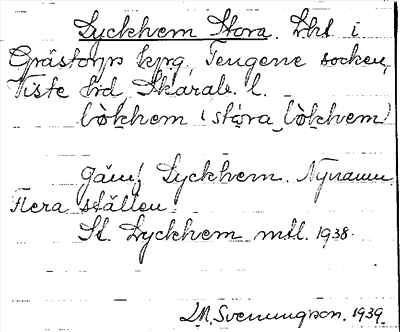 Lyckhem Stora. Lht i
Grästorps kpg, Tengene socken,
Viste hrd Skarab. l.
lòkhem (stóra lòkhem)
Jämf Lyckhem. Nynamn
Flera ställen
St. Lyckhem mtl. 1938.
D.A. Svenungson. 1939.